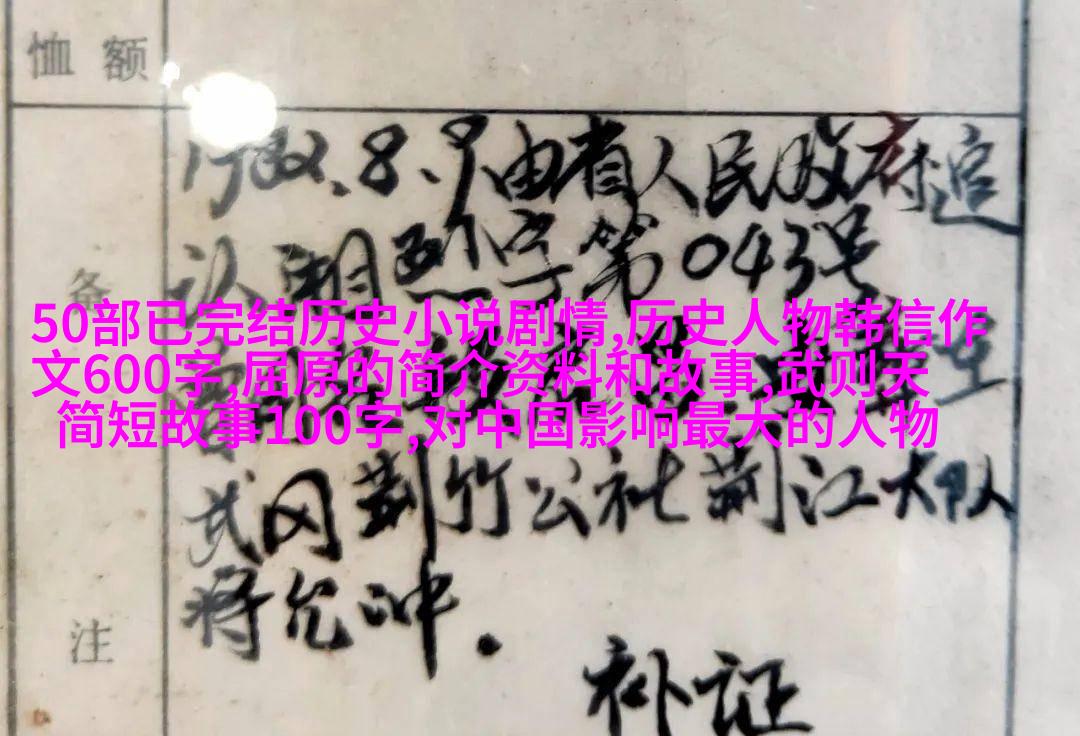 恤额
1982.8.9由省人民政府追
认 湘烈字第043号
备
50部已完结历史小说剧情,历史人物韩信作
文600字,屈原的简介资料和故事,武则天
简短故事100字,对中国影响最大的人物
武冈荆竹公社荆江大队
蒋允冲.
注
补证